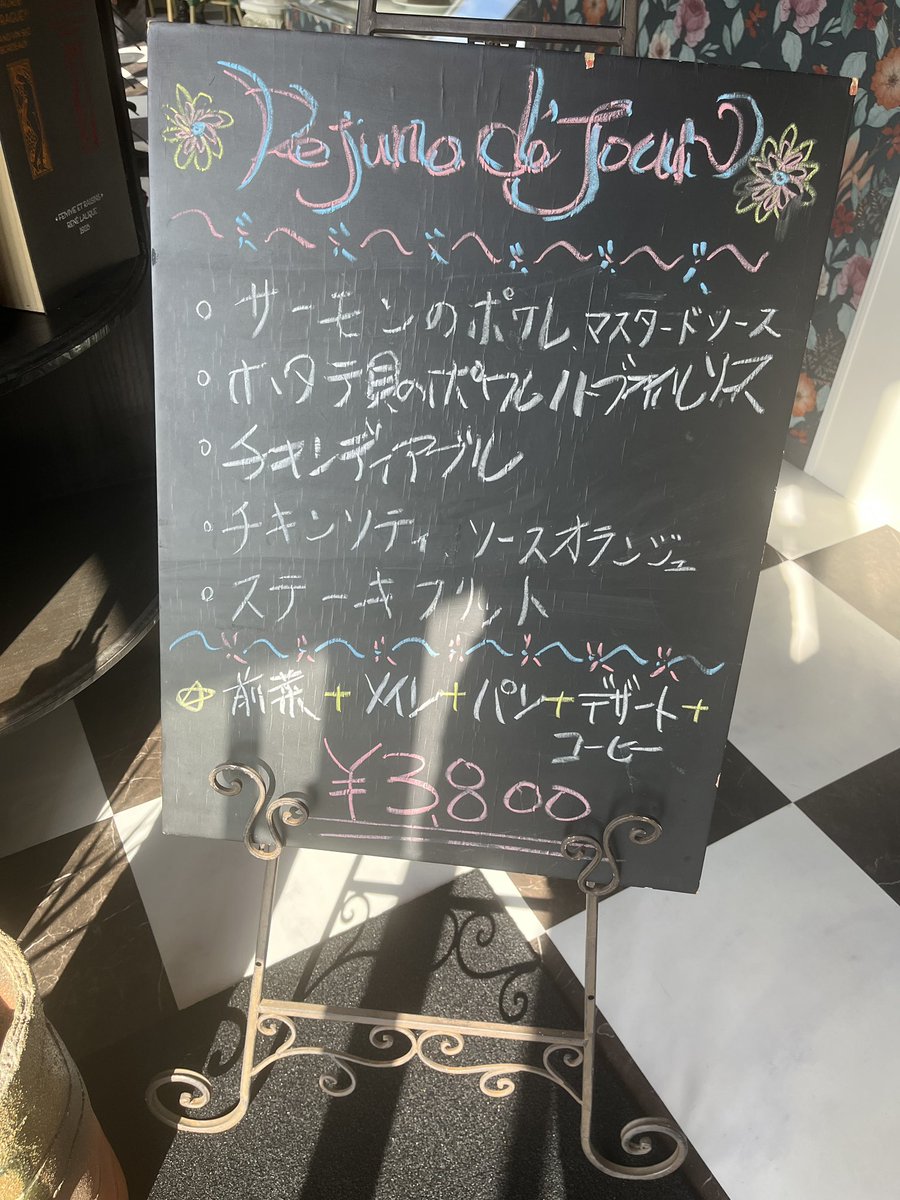 «FEMME ET RAISINS»
RENE LALIQUE
Dejuna de' Jour
サーモンのポワレ、マスタードソース
ホタテ貝のポワレ ハーブオイルソース
チキンディアーブル
チキンソティ、ソースオランジュ
ステーキフリット
前菜+メイン+パン+デザート+
コーヒー
¥3,800